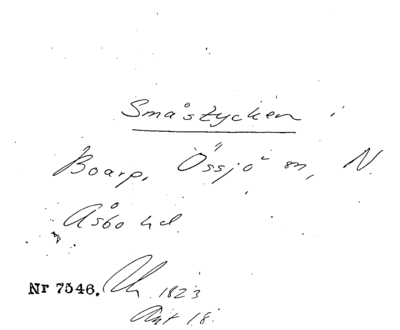 Småstycken i
Boarp, Össjö sn, N.
Åsbo hd.
Nr 7546. 1823
Akt 18.